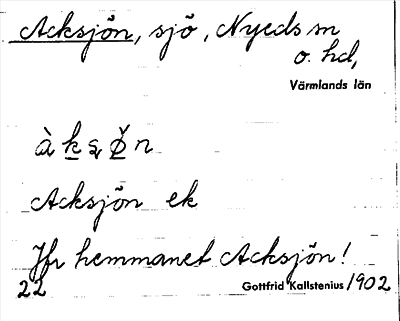 Acksjön, sjö, Nyeds sn
o. hd,
Värmlands län
Acksjön ek
Jfr hemmanet Acksjön!
22
Gottfrid Kallstenius 1902